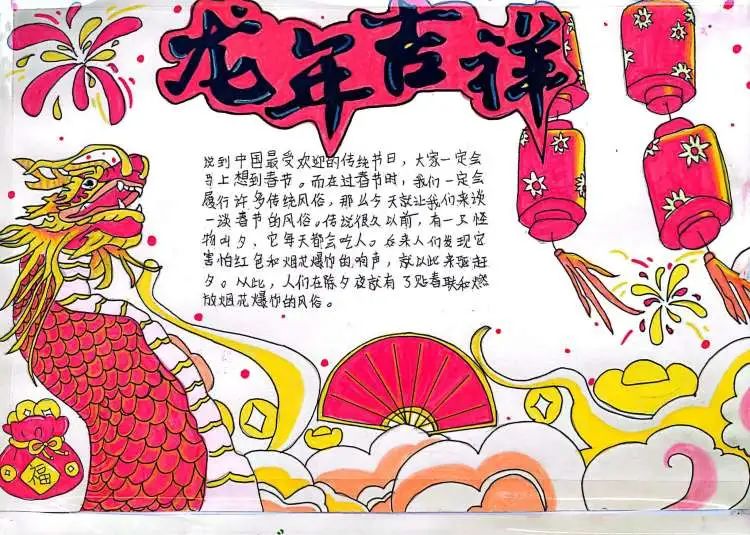 龙年吉祥
说到中国最受欢迎的传统节日，大家一定会
马上想到春节。而在过春节时，我们一定会
履行许多传统风俗，那么今天就让我们来谈
一谈春节的风俗。传说很久以前，有一只怪
物叫夕、它每天都会吃人。后来人们发现它
害怕红色和烟花爆炸的响声，就以此来驱赶
夕。从此，人们在除夕夜就有了贴春联和燃
放烟花爆炸的风俗。
福